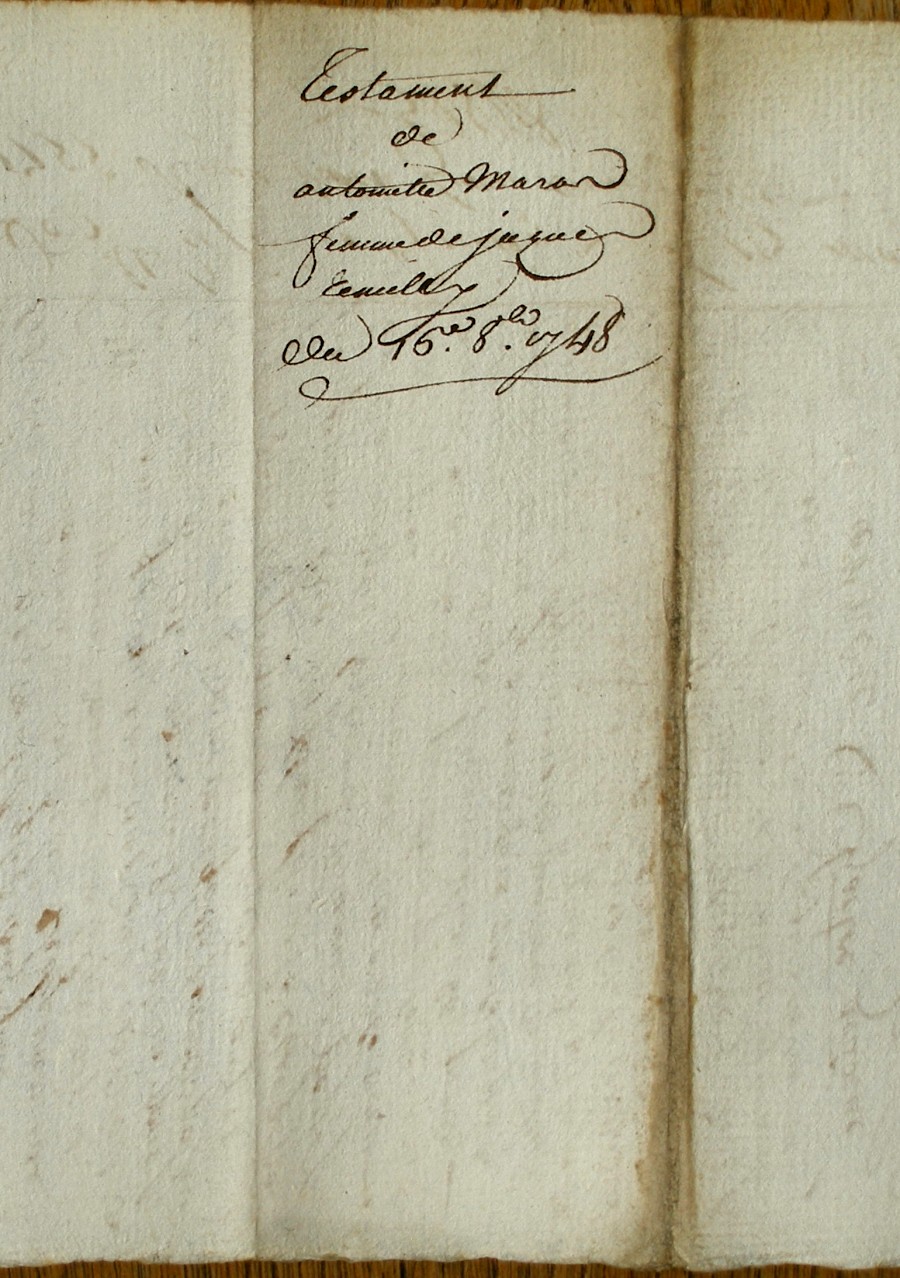 Testament
de
antoinette Maras
femme de jaques
du 16.e 8.bre 1748